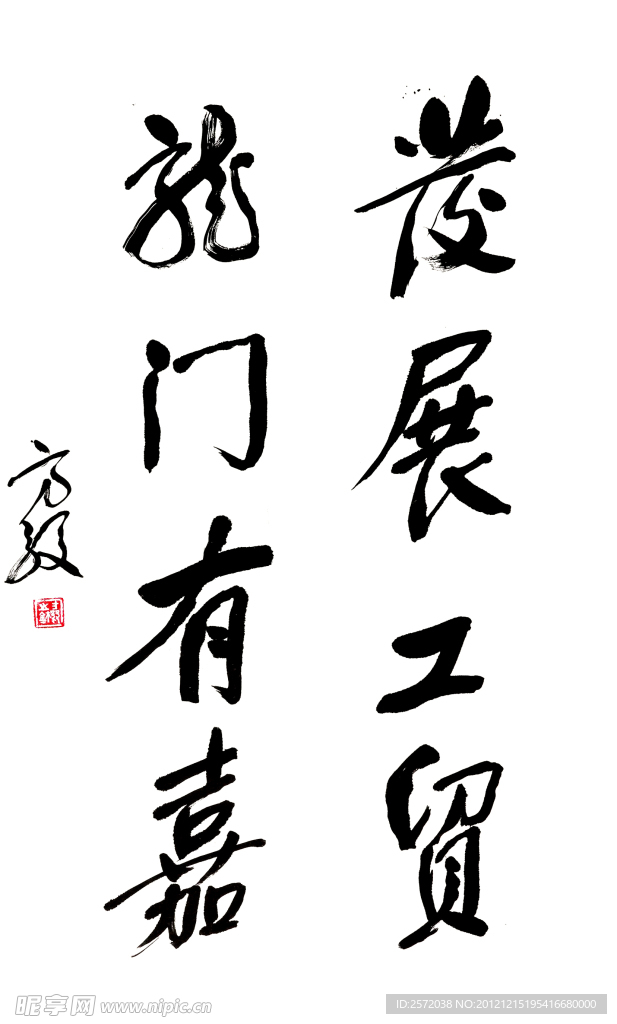 發展工貿
龍门有嘉
昵享网 www.nipic.cn
ID:2572038 NO:20121215195416680000